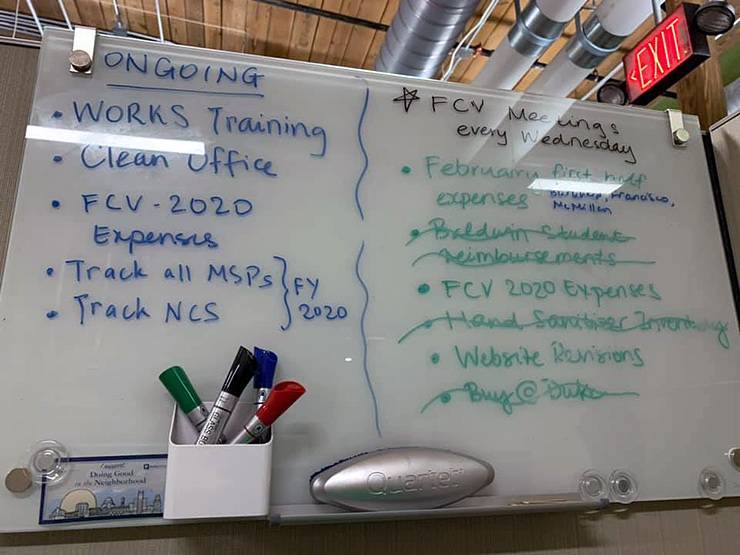 ONGOING
• WORKS Training
• Clean Office
• FCV - 2020
Expenses
• Track all MSPs
• Track NCS
FY
2020
☆ FCV Meetings
every Wednesday
• February first half
expenses
Francisco,
McMillan
• Baldwin Student
reimbursements
• FCV 2020 Expenses
• Hand Sanitizer Inventory
• Website Revisions
• Buy@Duke
EXIT
Doing Good
in the Neighborhood
Quartet